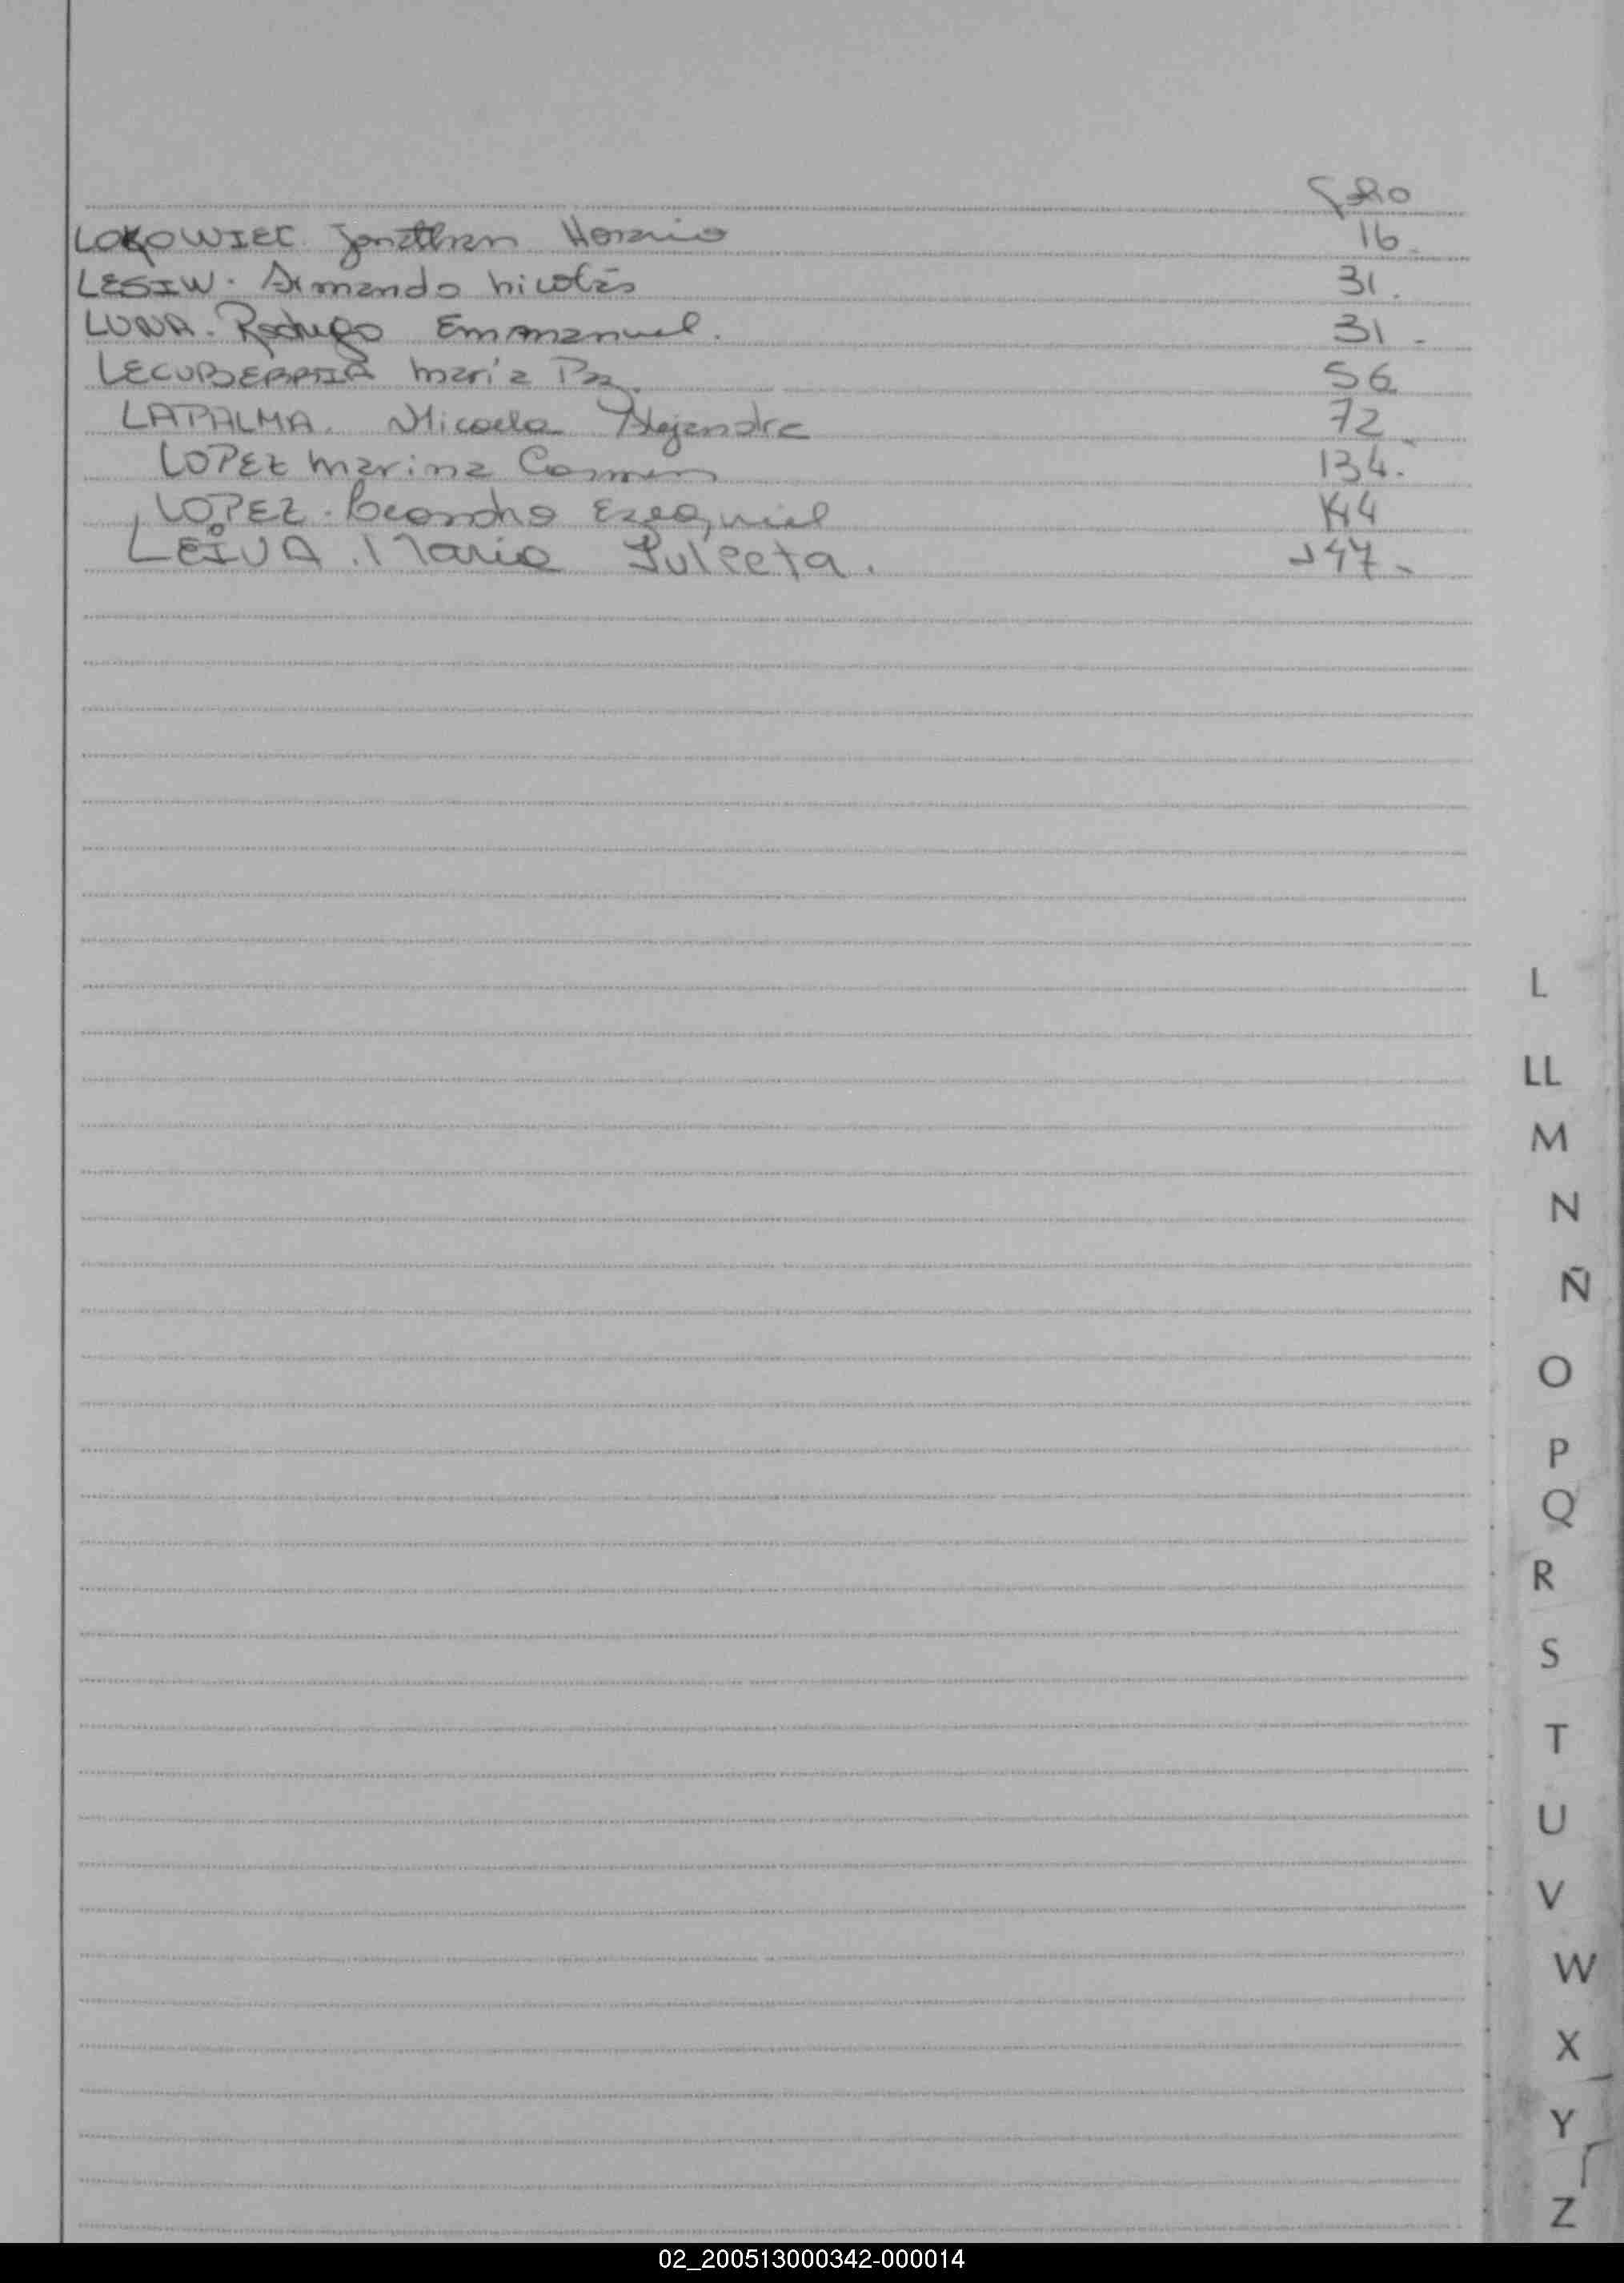 folio
LOKOWIEC Jonathan Horacio 16.
LESIW. Armando Nicolás 31.
LUNA. Rodrigo Emmanuel. 31.
LECUBERRIA María Paz. 56
LAPALMA. Micaela Alejandra 72
LOPEZ Marina Carmen 134.
LOPEZ. Leandro Ezequiel 144
LEIVA. Maria Julieta. 147.
L
LL
M
N
Ñ
O
P
Q
R
S
T
U
V
W
X
Y
Z
02_200513000342-000014